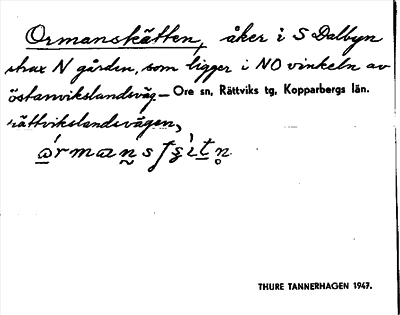 Ormanskätten, åker i S Dalbyn
strax N gården, som ligger i NO vinkeln av
östanvikslandsväg – Ore sn, Rättviks tg, Kopparbergs län.
rättvikslandsvägen,
THURE TANNERHAGEN 1947.